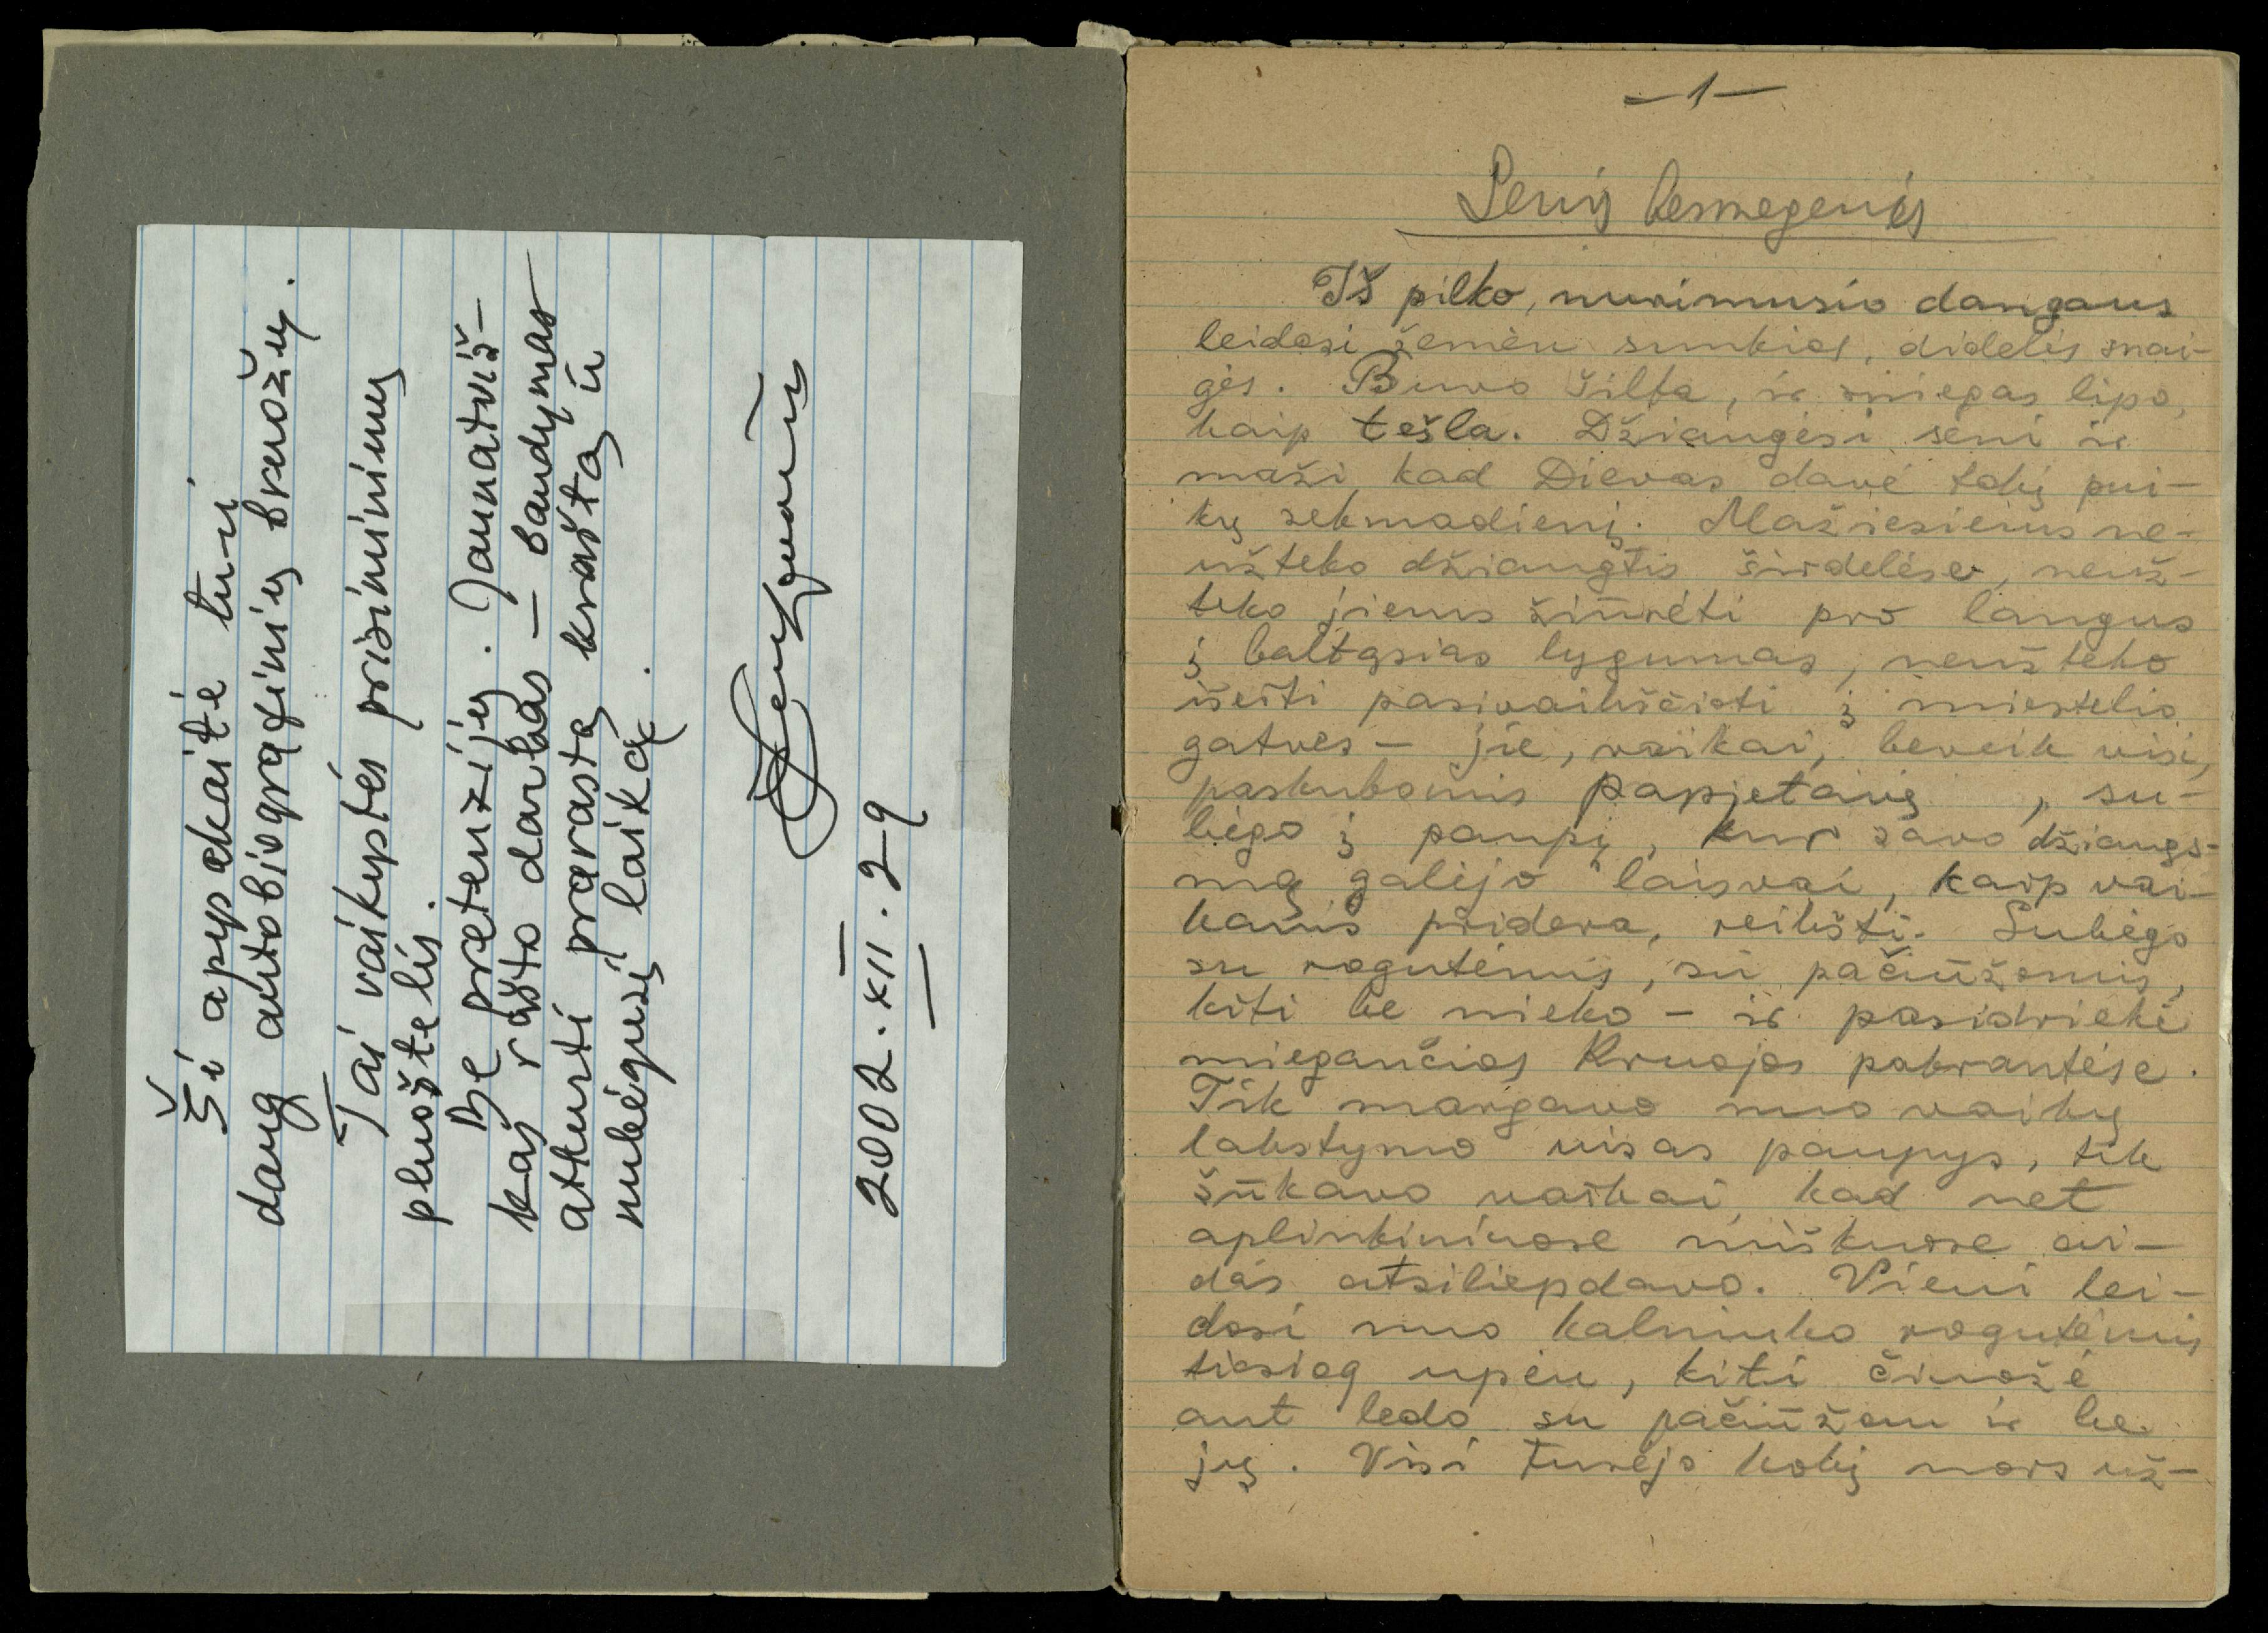 Ši apysakaitė turi
daug autobiografinių bruožų.
Tai vaikystės prisiminimų
pluoštelis.
Be pretenzijų. Jaunatviš-
kas rašto darbas – bandymas
atkurti prarastą kraštą ir
nubėgusį laiką.
2002.XII.29
– 1 –
Senis besmegenis
Iš pilko, nurimusio dangaus
leidosi žemėn sunkios, didelės snai-
gės. Buvo šilta, ir sniegas lipo,
kaip tešla. Džiaugėsi seni ir
maži, kad Dievas davė tokį pui-
kų sekmadienį. Mažiesiems ne-
užteko džiaugtis širdelėse, neuž-
teko jiems žiūrėti pro langus
į baltąsias lygumas, neužteko
išeiti pasivaikščioti į miestelio
gatves – jie, vaikai, beveik visi,
paskubomis papietavę, su-
bėgo į paupį, kur savo džiaugs-
mą galėjo laisvai, kaip vai-
kams pridera, reikšti. Subėgo
su rogutėmis, su pačiūžomis,
kiti be nieko – ir pasidriekė
miegančios Kruojos pakrantėse.
Tik margavo nuo vaikų
lakstymo visas paupys, tik
šūkavo vaikai, kad net
aplinkiniuose miškuose ai-
das atsiliepdavo. Vieni lei-
dosi nuo kalniuko rogutėmis
tiesiog upėn, kiti čiuožė
ant ledo su pačiūžom ir be
jų. Visi turėjo kokį nors už-